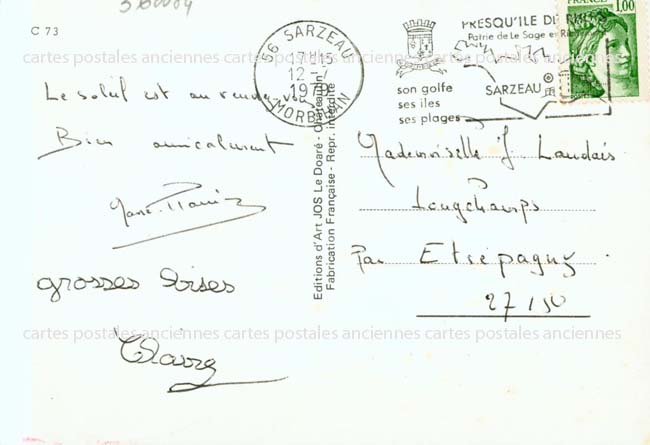 560004
C 73
56 SARZEAU
17H15
12-7
1979
MORBIHAN
son golfe
ses iles
ses plages
PRESQU'ILE DE RHUYS
Patrie de Le Sage et
SARZEAU
FRANCE
1,00
cartes postales anciennes cartes postales anciennes cartes postales anciennes
Le soleil est au rendez-vous
Bien amicalement
grosses bises
Editions d'Art JOS Le Doaré - Châteaulin
Fabrication Française - Repr. interdite
Mademoiselle J Landais
Longchamps
Par Etrépagny
27150
cartes postales anciennes cartes postales anciennes cartes postales anciennes